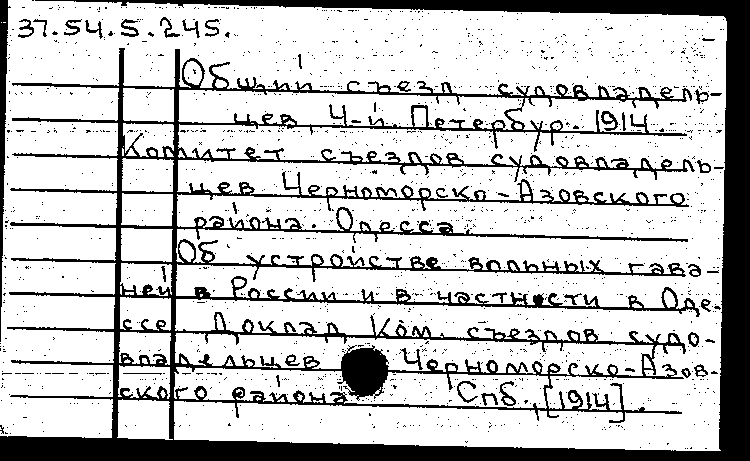 37.54.5.245.
Общий съезд судовладель-
цев, 4-й. Петербург. 1914.
Комитет съездов судовладель-
цев Черноморско-Азовского
района. Одесса.
Об устройстве вольных гава-
ней в России и в частности в Оде-
ссе. Доклад Ком. съездов судо-
владельцев Черноморско-Азов-
ского района Спб., [1914].